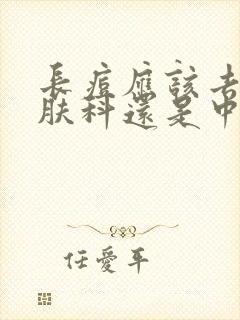 長痘應該去
膚科還是中
任愛平